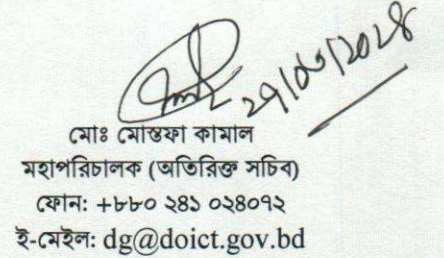 মোঃ মোস্তফা কামাল
মহাপরিচালক (অতিরিক্ত সচিব)
ফোন: +৮৮০ ২৪১ ০২৪০৭২
ই-মেইল: dg@doict.gov.bd